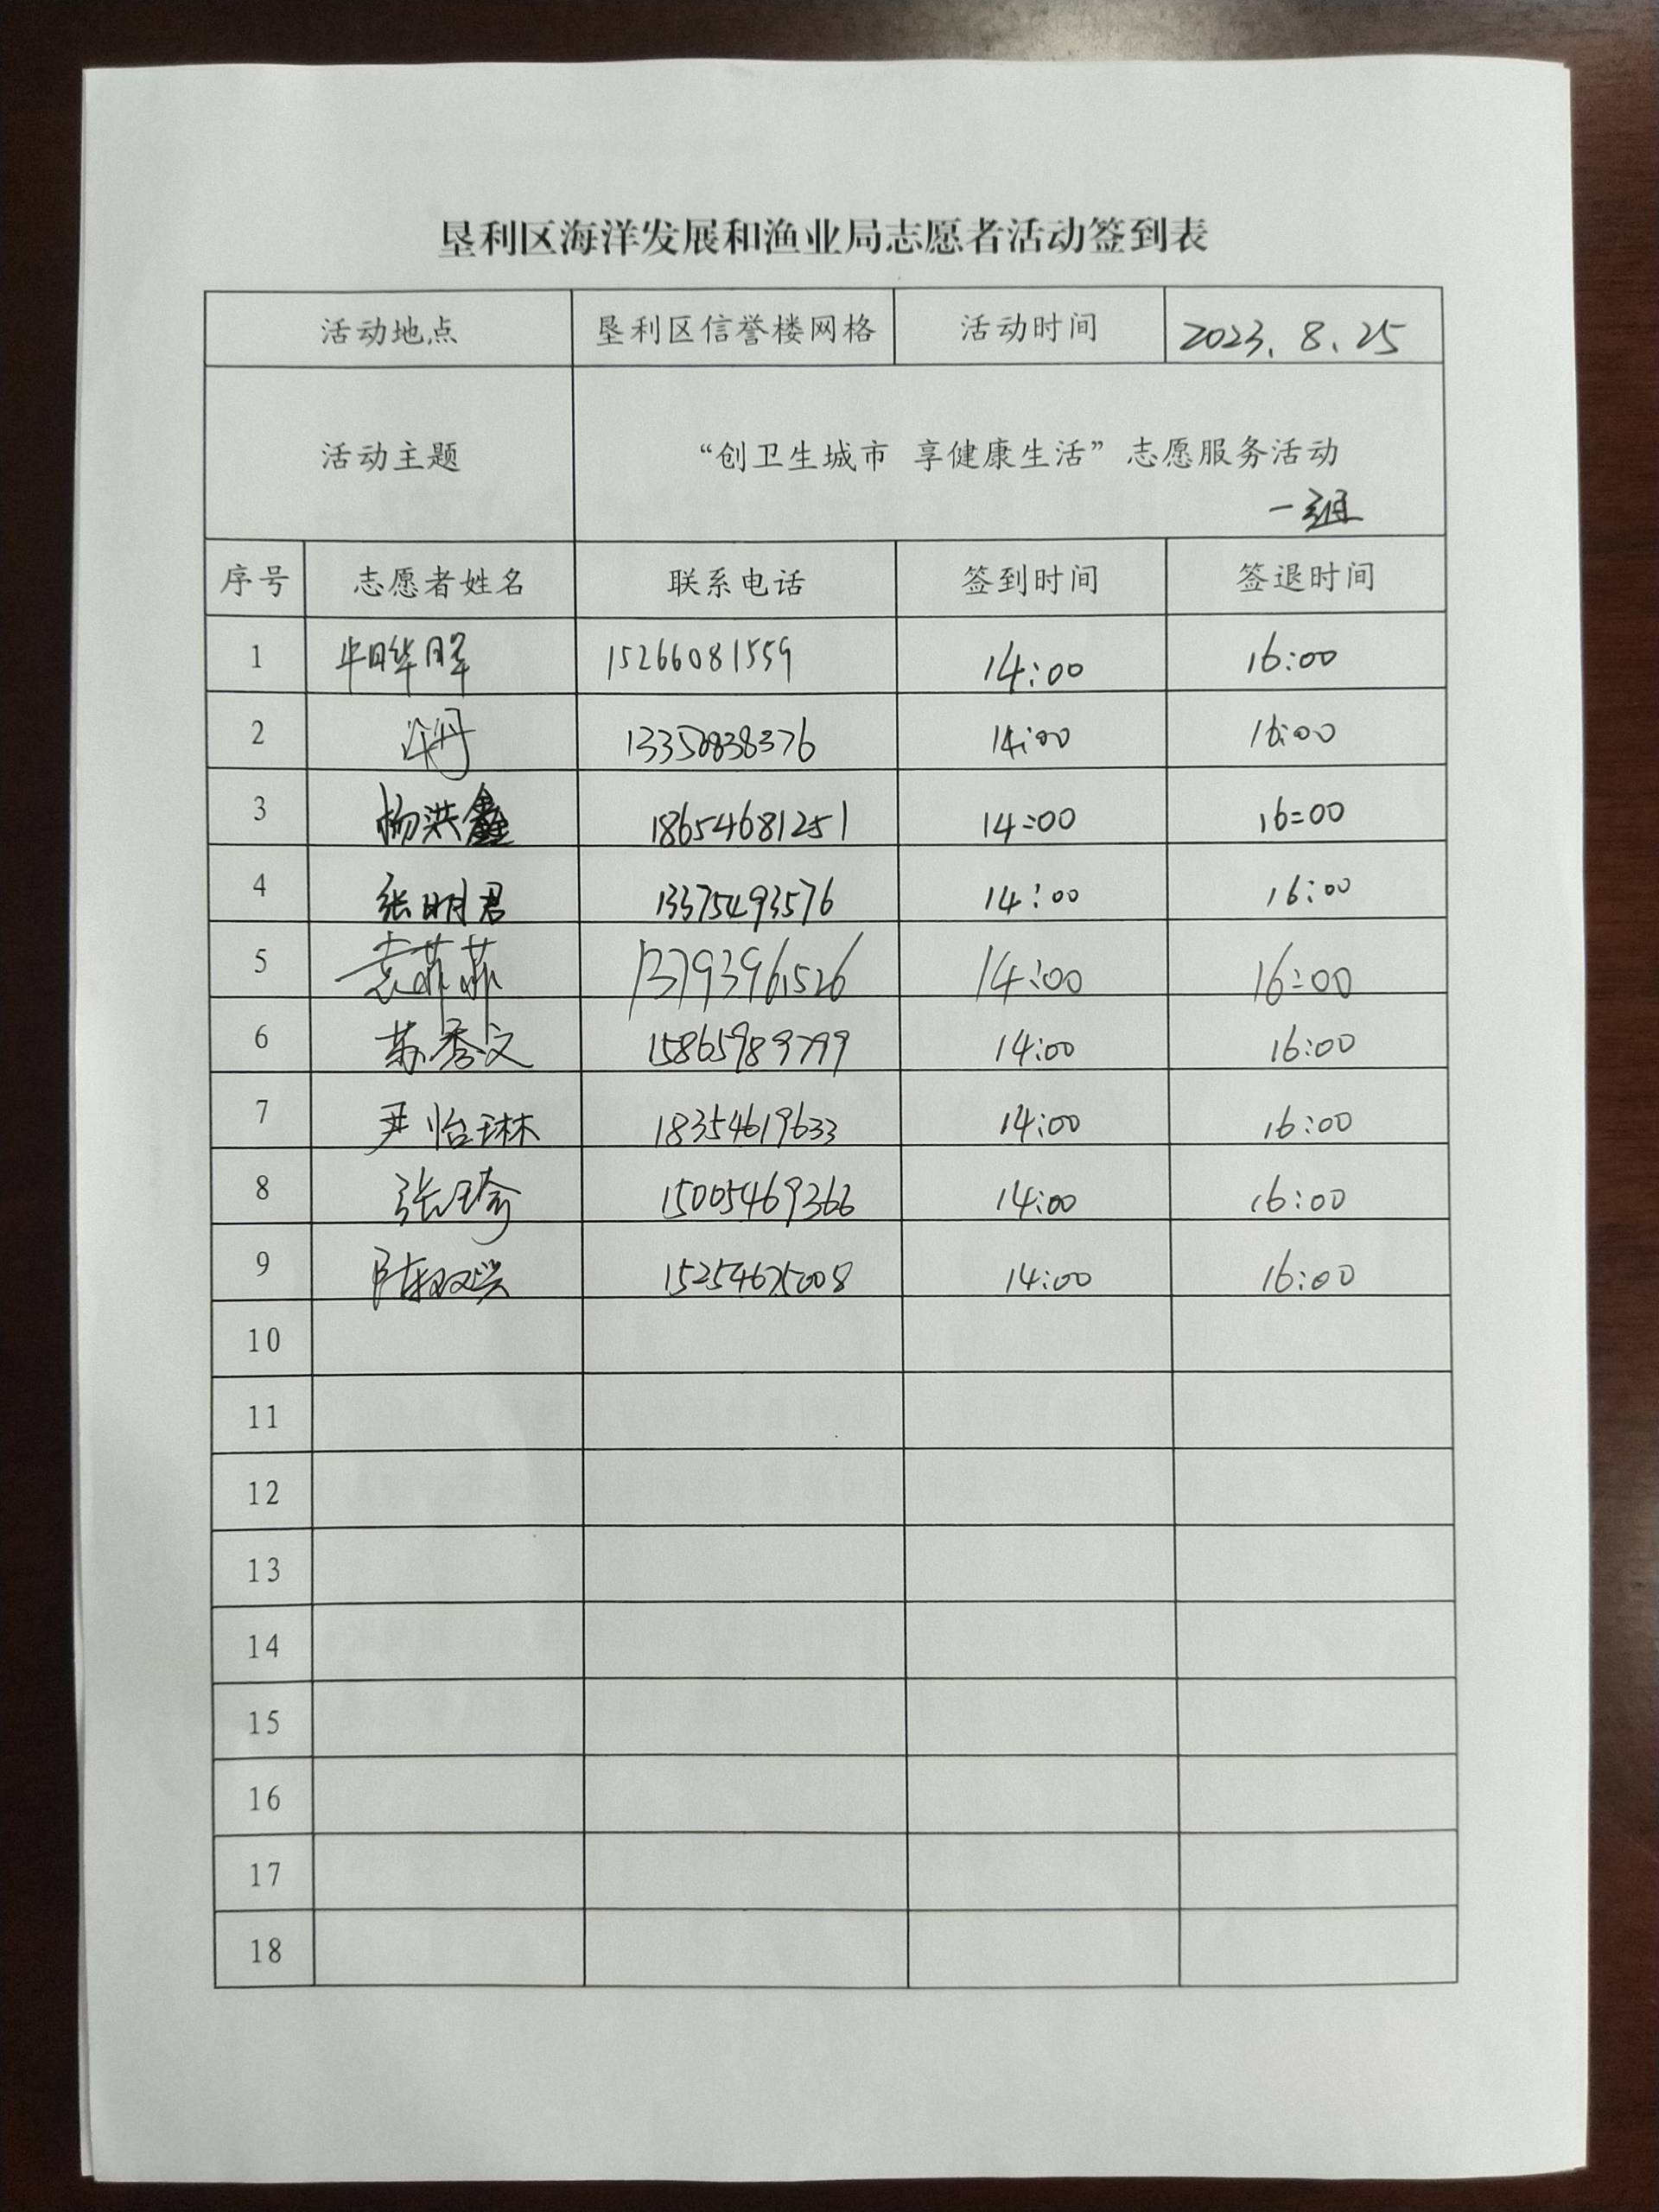 垦利区海洋发展和渔业局志愿者活动签到表
活动地点 垦利区信誉楼网格 活动时间 2023.8.25
活动主题 “创卫生城市 享健康生活”志愿服务活动
一组
序号 志愿者姓名 联系电话 签到时间 签退时间
1 15266081559 14:00 16:00
2 14:00 16:00
3 杨洪鑫 18654681251 14:00 16:00
4 张明君 13375493576 14:00 16:00
5 袁菲菲 13793961526 14:00 16:00
6 苏秀文 14:00 16:00
7 尹怡琳 18354619633 14:00 16:00
8 张瑜 15005469366 14:00 16:00
9 陈双兴 15254675008 14:00 16:00
10
11
12
13
14
15
16
17
18